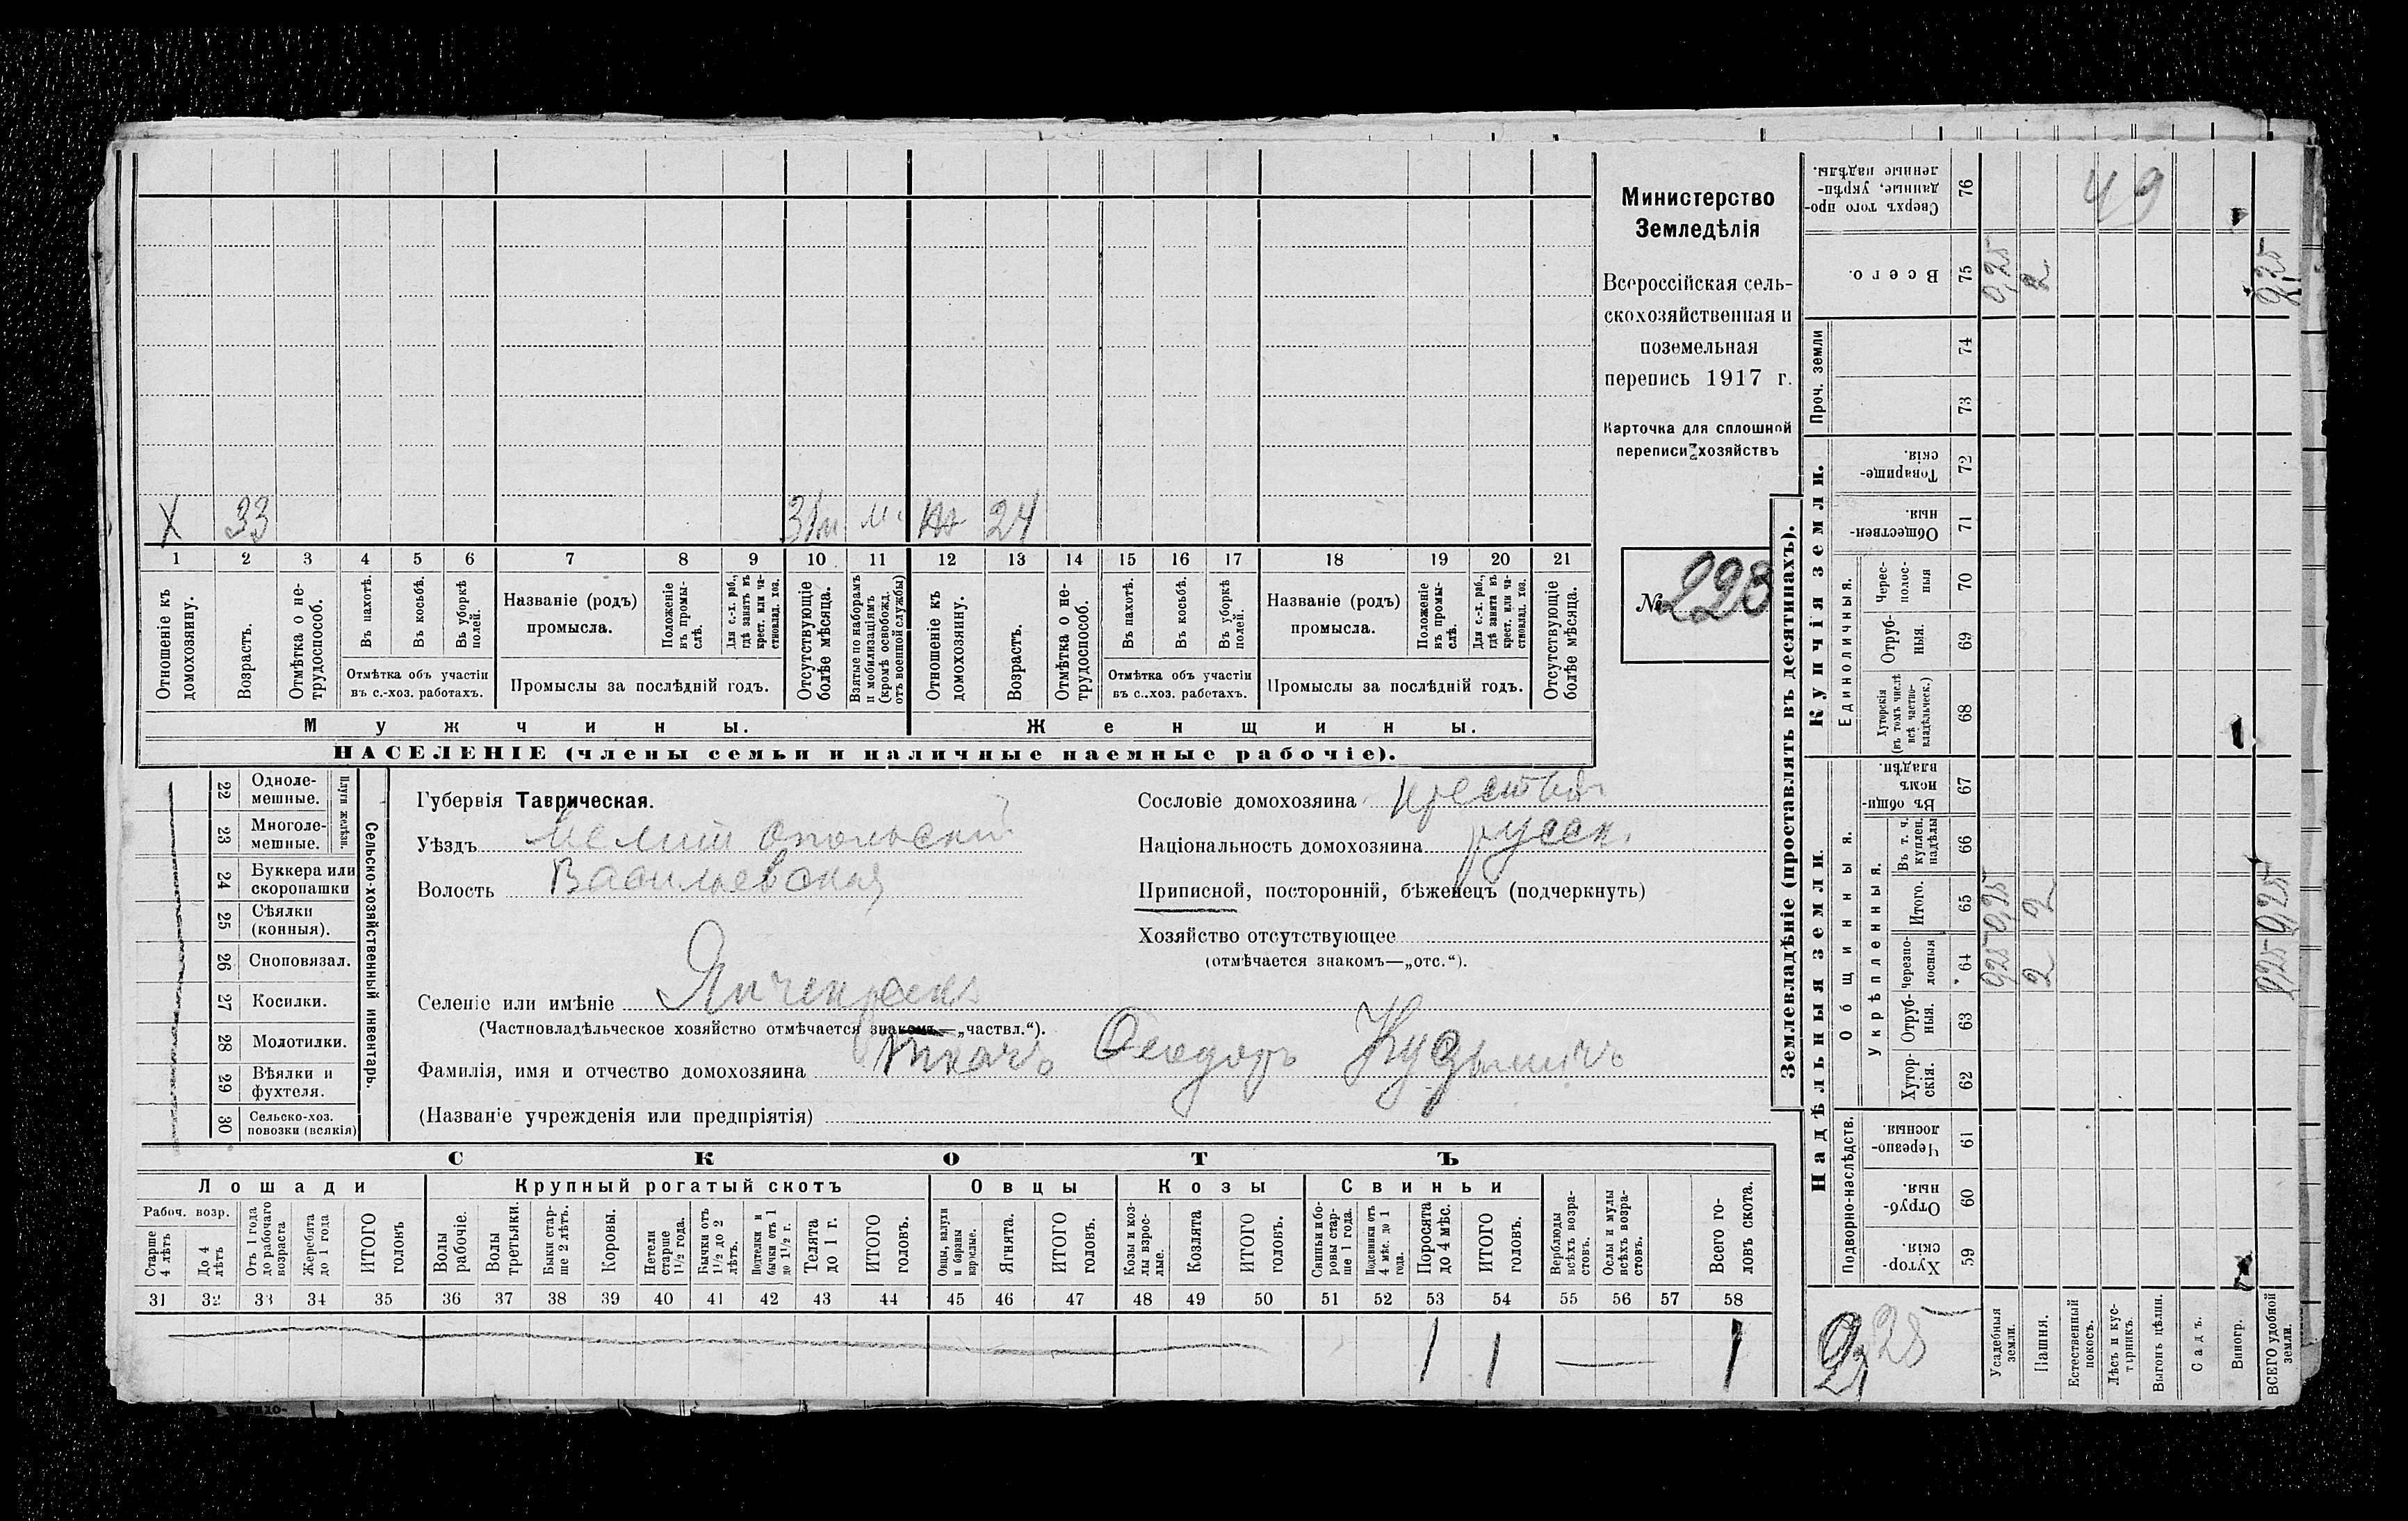 Министерство
Земледѣлія
Всероссійская сель-
скохозяйственная и
поземельная
перепись 1917 г.
Карточка для сплошной
переписи хозяйствъ
№ 223
X 33 24
1 2 3 4 5 6 7 8 9 10 11 12 13 14 15 16 17 18 19 20 21
Отношеніе къ домохозяину.
Возрастъ.
Отмѣтка о не-трудоспособ.
Въ пахотѣ.
Въ косьбѣ.
Въ уборкѣ полей.
Отмѣтка объ участіи
въ с.-хоз. работахъ.
Названіе (родъ)
промысла.
Положеніе въ промы-слѣ.
Для с.-х. раб., гдѣ занятъ въ крест. или ча-стновлад. хоз.
Промыслы за послѣдній годъ.
Отсутствующіе болѣе мѣсяца.
Взятые по наборамъ и мобилизаціямъ (кромѣ освобожд. отъ военной службы)
Отношеніе къ домохозяину.
Возрастъ.
Отмѣтка о не-трудоспособ.
Въ пахотѣ.
Въ косьбѣ.
Въ уборкѣ полей.
Отмѣтка объ участіи
въ с..хоз. работахъ.
Названіе (родъ)
промысла.
Положеніе въ промы-слѣ.
Для с.-х. раб., гдѣ занята въ крест. или ча-стновлад. хоз.
Промыслы за послѣдній годъ.
Отсутствующіе болѣе мѣсяца.
Мужчины.
Женщины.
НАСЕЛЕНІЕ (члены семьи и наличные наемные рабочіе).
22 Одноле-мешные.
23 Многоле-мешные.
Плуги желѣзн.
24 Буккера или скоропашки
25 Сѣялки (конныя).
26 Сноповязал.
27 Косилки.
28 Молотилки.
29 Вѣялки и фухтеля.
30 Сельско-хоз. повозки (всякія)
Сельско-хозяйственный инвентарь.
Губернія Таврическая.
Уѣздъ Мелитопольскій
Волость Васильевская
Селеніе или имѣніе Янчекракъ
(Частновладѣльческое хозяйство отмѣчается знакомъ—„частвл.“).
Фамилія, имя и отчество домохозяина Ткачъ Ѳеодоръ Кузьмичъ
(Названіе учрежденія или предпріятія)
Сословіе домохозяина
Національность домохозяина русск.
Приписной, посторонній, бѣженецъ (подчеркнуть)
Хозяйство отсутствующее
(отмѣчается знакомъ—„отс.“).
СКОТЪ
Лошади
Крупный рогатый скотъ
Овцы
Козы
Свиньи
Рабоч. возр.
Старше 4 лѣтъ
До 4 лѣтъ
Отъ 1 года до рабочаго возраста
Жеребята до 1 года
ИТОГО головъ
Волы рабочіе.
Волы третьяки.
Быки стар-ше 2 лѣтъ.
Коровы.
Нетели старше 1½ года.
Бычки отъ 1½ до 2 лѣтъ.
Подтелки и бычки отъ 1 до 1½ г.
Телята до 1 г.
ИТОГО головъ.
Овцы, валухи и бараны взрослые.
Ягнята.
ИТОГО головъ.
Козы и коз-лы взрос-лые.
Козлята
ИТОГО головъ.
Свиньи и бо-ровы стар-ше 1 года.
Подсвинки отъ 4 мѣс. до 1 года.
Поросята до 4 мѣс.
ИТОГО головъ.
Верблюды всѣхъ возра-стовъ.
Ослы и мулы всѣхъ возра-стовъ.
Всего го-ловъ скота.
31 32 33 34 35 36 37 38 39 40 41 42 43 44 45 46 47 48 49 50 51 52 53 54 55 56 57 58
1 1 1
Землевладѣніе (проставлять въ десятинахъ).
Купчія земли.
Надѣльныя земли.
Проч. земли
Единоличныя.
Общинныя.
Укрѣпленныя.
Подворно-наслѣдств.
Сверхъ того про-данные, укрѣп-ленные надѣлы. 76 49
Всего. 75 0,25 2 2,25
74
73
Товарище-скія. 72
Обществен-ныя. 71
Черес-полос-ныя 70
Отруб-ныя. 69
Хуторскія (въ томъ числѣ всѣ частно-владѣльческ.) 68
Въ общи-номъ владѣн. 67
Въ т. ч. куплен. надѣлы 66
Итого. 65 0,25 2 2,25
Черезпо-лосныя 64 0,25 2 2,25
Отруб-ныя. 63
Хутор-скія. 62
Черезпо-лосныя. 61
Отруб-ныя. 60
Хутор-скія. 59
2,25
Усадебныя земли.
Пашня.
Естественный покосъ.
Лѣсъ и кус-тарникъ.
Выгонъ цѣлин.
Садъ.
Виногр.
ВСЕГО удобной земли.